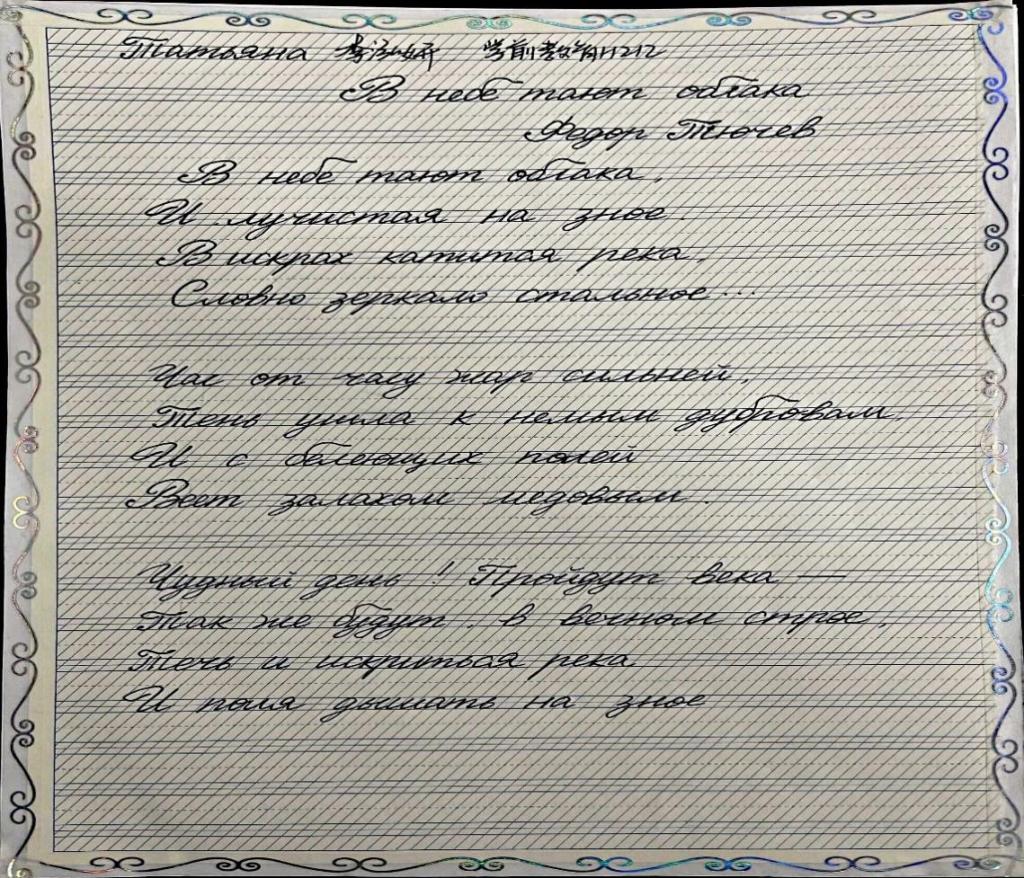 Татьяна 李泓妍 学前教育11212
В небе тают облака
Федор Тютчев
В небе тают облака,
И лучистая на зное.
В искрах катитая река,
Словно зеркало стальное...
Час от часу жар сильней,
Тень ушла к немым дубровам.
И с белеющих полей
Веет запахом медовым.
Чудный день! Пройдут века —
Так же будут, в вечном строе,
Течь и искриться река
И поля дышать на зное